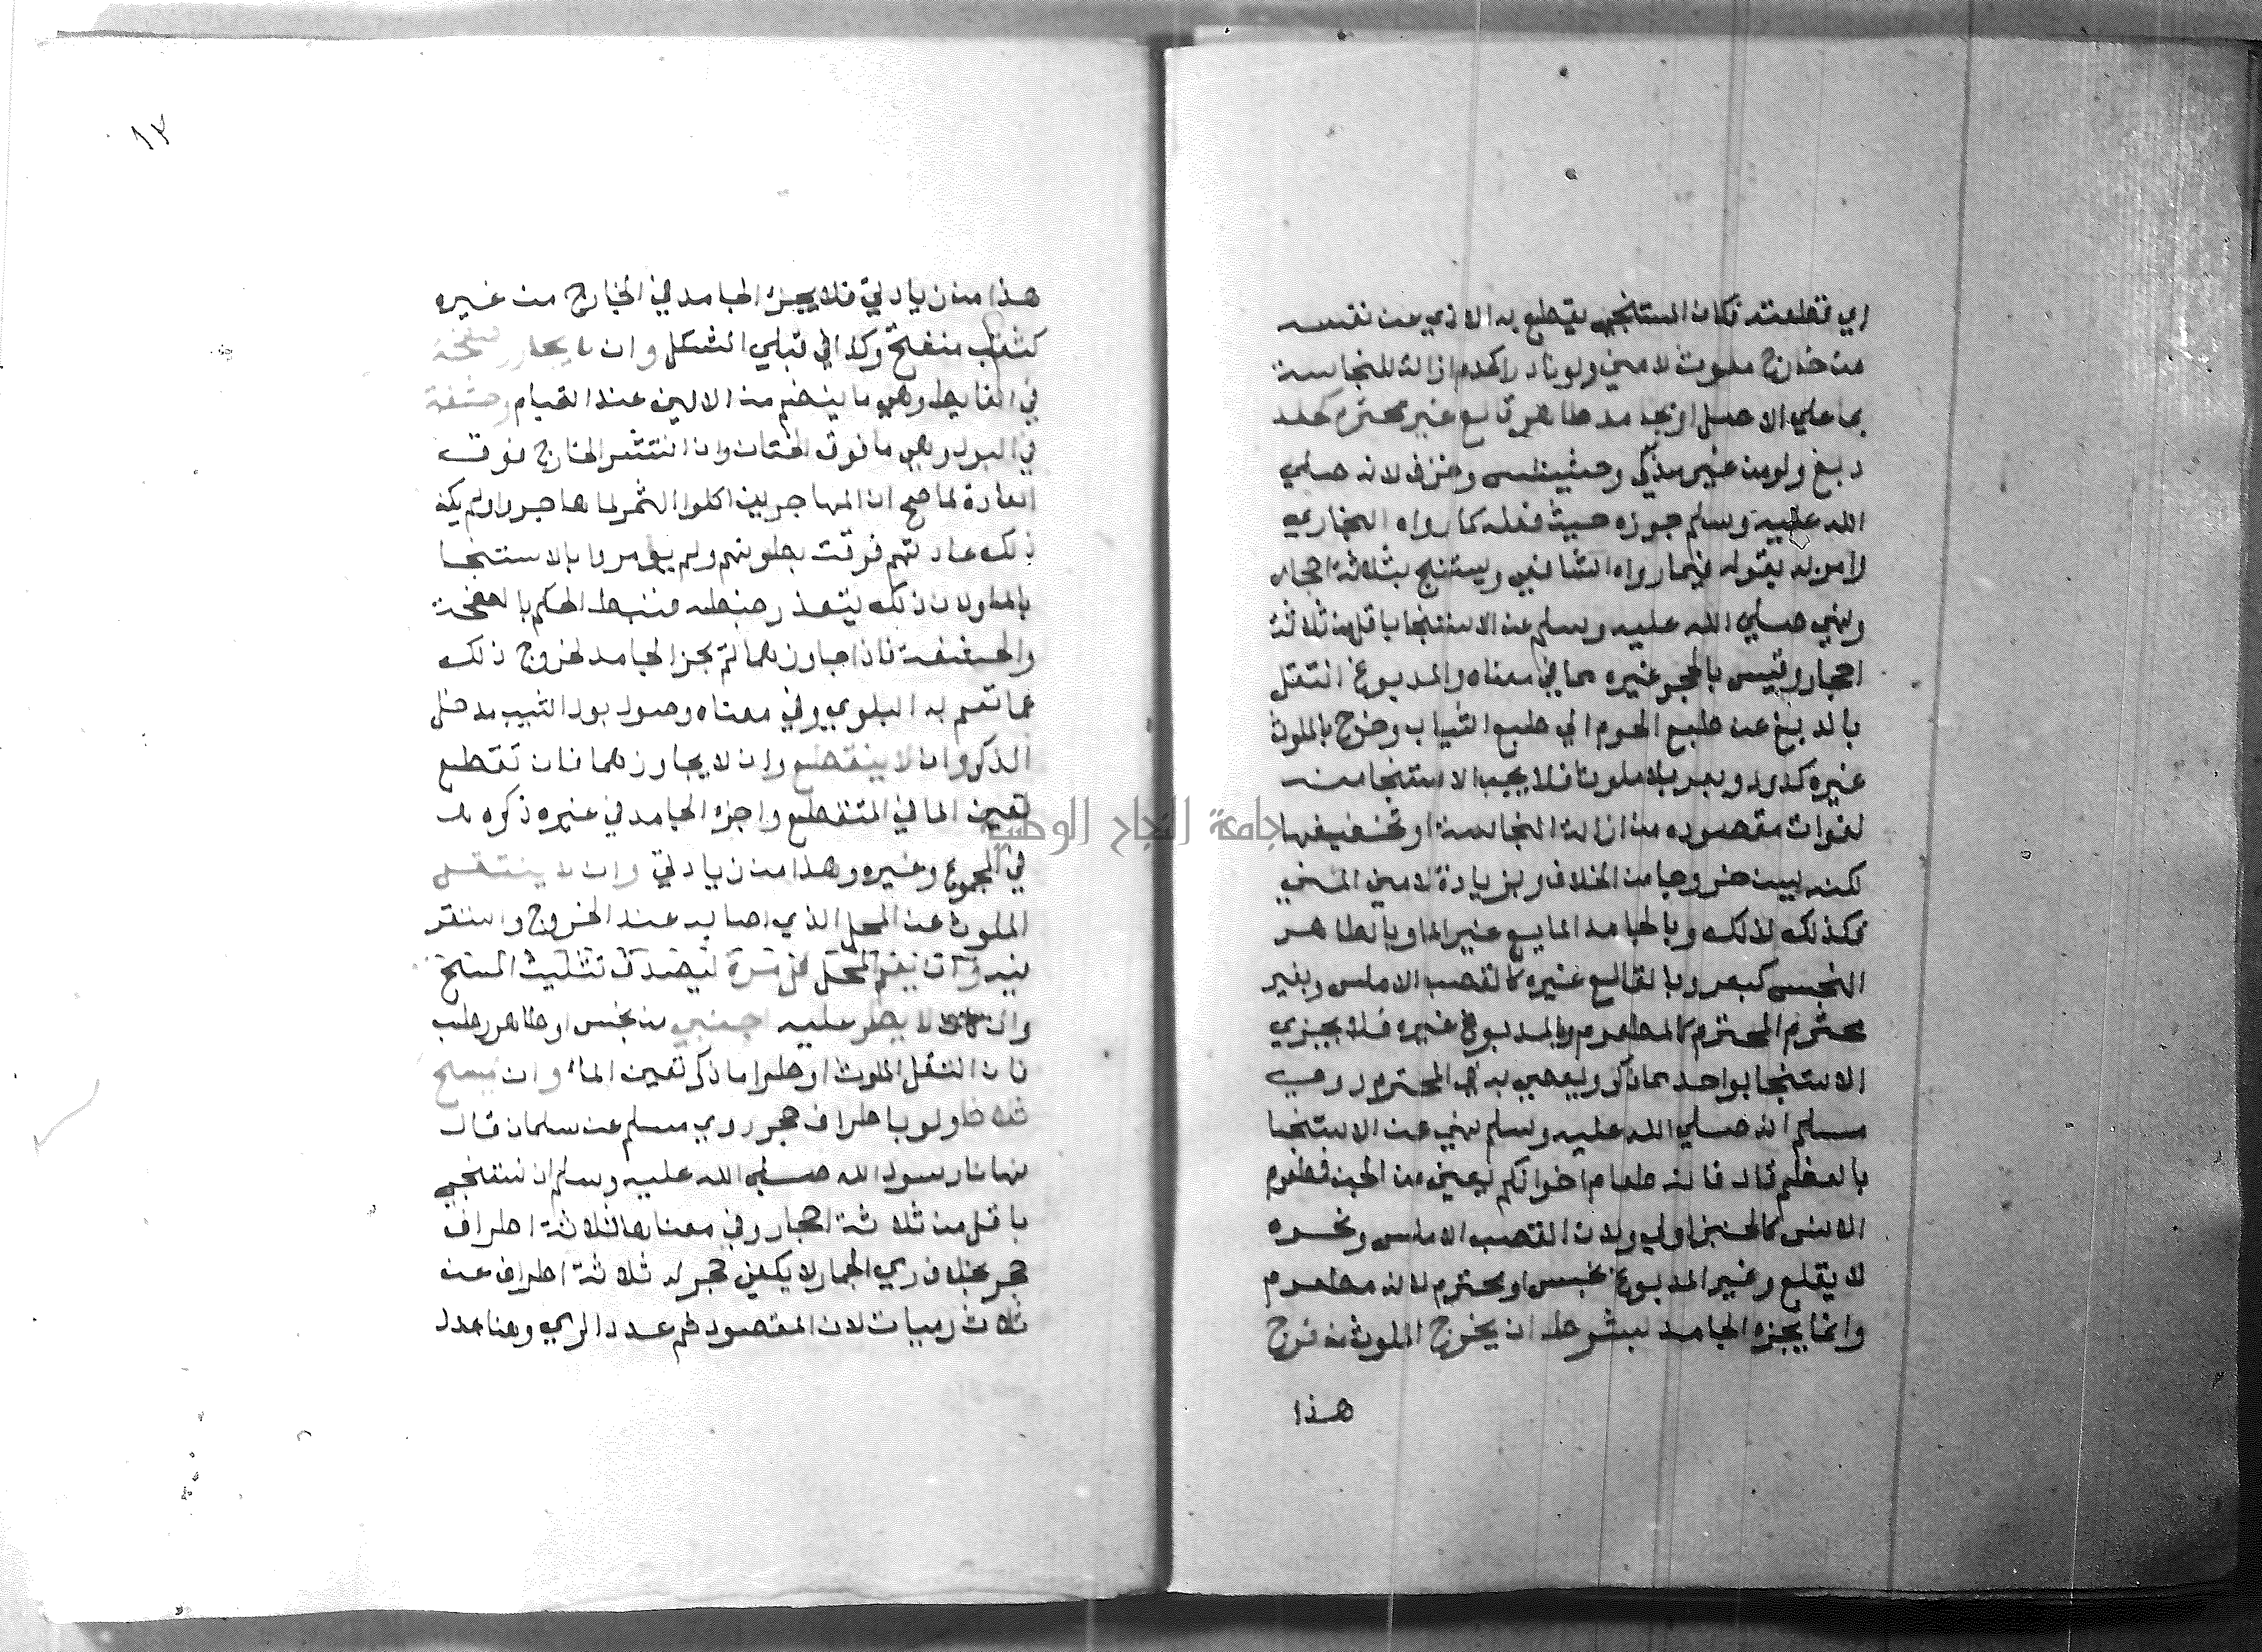 اي قطعته فكان المستنجي يقطع به الاذي عن نفسه
من خارج ملوث لا مني ولو نادرا كدم ازالة للنجاسة
بما علي الاصل او بجامد طاهر قالع غير محترم كجلد
دبغ ولو من غير مذكي وحشيش وخزف لانه صلي
الله عليه وسلم جوزه حيث فعله كما رواه البخاري
وامر به بقوله فيما رواه الشافعي وليستنج بثلاثة احجار
ونهي صلي الله عليه وسلم عن الاستنجا باقل من ثلاثة
احجار وقيس بالحجر غيره مما في معناه والمدبوغ انتقل
بالدبغ عن طبع اللحوم الي طبع الثياب وخرج بالملوث
غيره كدود وبعر بلا ملوث فلا يجب الاستنجا منه
لفوات مقصوده من ازالة النجاسة او تخفيفها
لكنه يسن خروجا من الخلاف وبزيادة لا مني المني
فكذلك لذلك وبالجامد المايع غير الما وبالطاهر
النجس كبعر وبالقالع غيره كالقصب الاملس وبغير
محترم المحترم كالمطعوم وبالمدبوغ غيره فلا يجزي
الاستنجا بواحد مما ذكر ويعصي به في المحترم روي
مسلم انه صلي الله عليه وسلم نهي عن الاستنجا
بالعظم قال فانه طعام اخوانكم يعني من الجن فمطعوم
الانس كالخبز اولي ولان القصب الاملس ونحوه
لا يقلع وغير المدبوغ نجس او محترم لانه مطعوم
وانما يجزء الجامد بشرط ان يخرج الملوث من فرج
هذا
١٣
هذا من زيادتي فلا يجزء الجامد في الخارج من غيره
كثقب منفتح وكذا في قبلي المشكل وان لا يجاوز صفحة
في الغايط وهي ما ينضم من الاليين عند القيام وحشفة
في البول وهي ما فوق الختان وان انتشر الخارج فوق
العادة لما صح ان المهاجرين اكلوا التمر لما هاجروا ولم يكن
ذلك عادتهم فرقت بطونهم ولم يؤمروا بالاستنجا
بالما ولان ذلك يتعذر ضبطه فنيط الحكم بالصفحة
والحشفة فاذا جاوزهما لم يجز الجامد لخروج ذلك
عما تعم به البلوي وفي معناه وصول بول الثيب مدخل
الذكر وان لا ينقطع وان لا يجاوزهما فان تقطع
تعين الما في المتقطع واجزء الجامد في غيره ذكره
في المجموع وغيره وهذا من زيادتي وان لا ينتقل
الملوث عن المحل الذي اصابه عند الخروج واستقر
لا يطر عليه اجنبي من نجس او طاهر رطب
فان انتقل الملوث او طرا ما ذكر تعين الماء وان يمسح
ثلاثا ولو باطراف حجر روي مسلم عن سلمان قال
نهانا رسول الله صلي الله عليه وسلم ان نستنجي
باقل من ثلاثة احجار وفي معناها ثلاثة اطراف
حجر بخلاف رمي الجمار لا يكفي حجر له ثلاثة اطراف عن
ثلاث رميات لان المقصود ثم عدد الرمي وهنا عدد
جامعة النجاح الوطنية